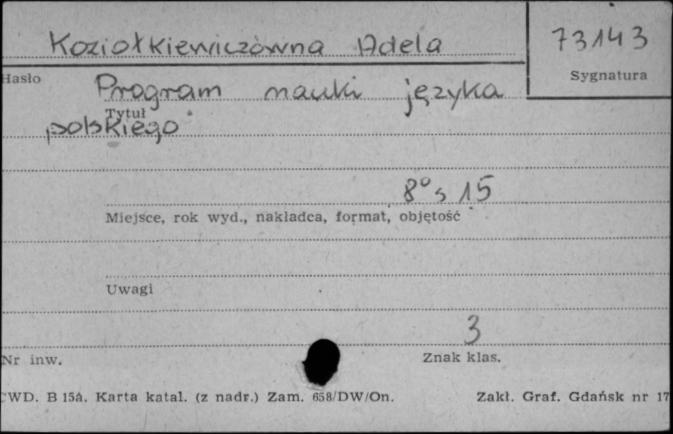 Koziołkiewiczówna Adela
73143
Hasło
Sygnatura
Program nauki języka
Tytuł
polskiego
8° s 15
Miejsce, rok wyd., nakładca, format, objętość
Uwagi
3
Nr inw.
Znak klas.
CWD. B 15a. Karta katal. (z nadr.) Zam. 658/DW/On.
Zakł. Graf. Gdańsk nr 17